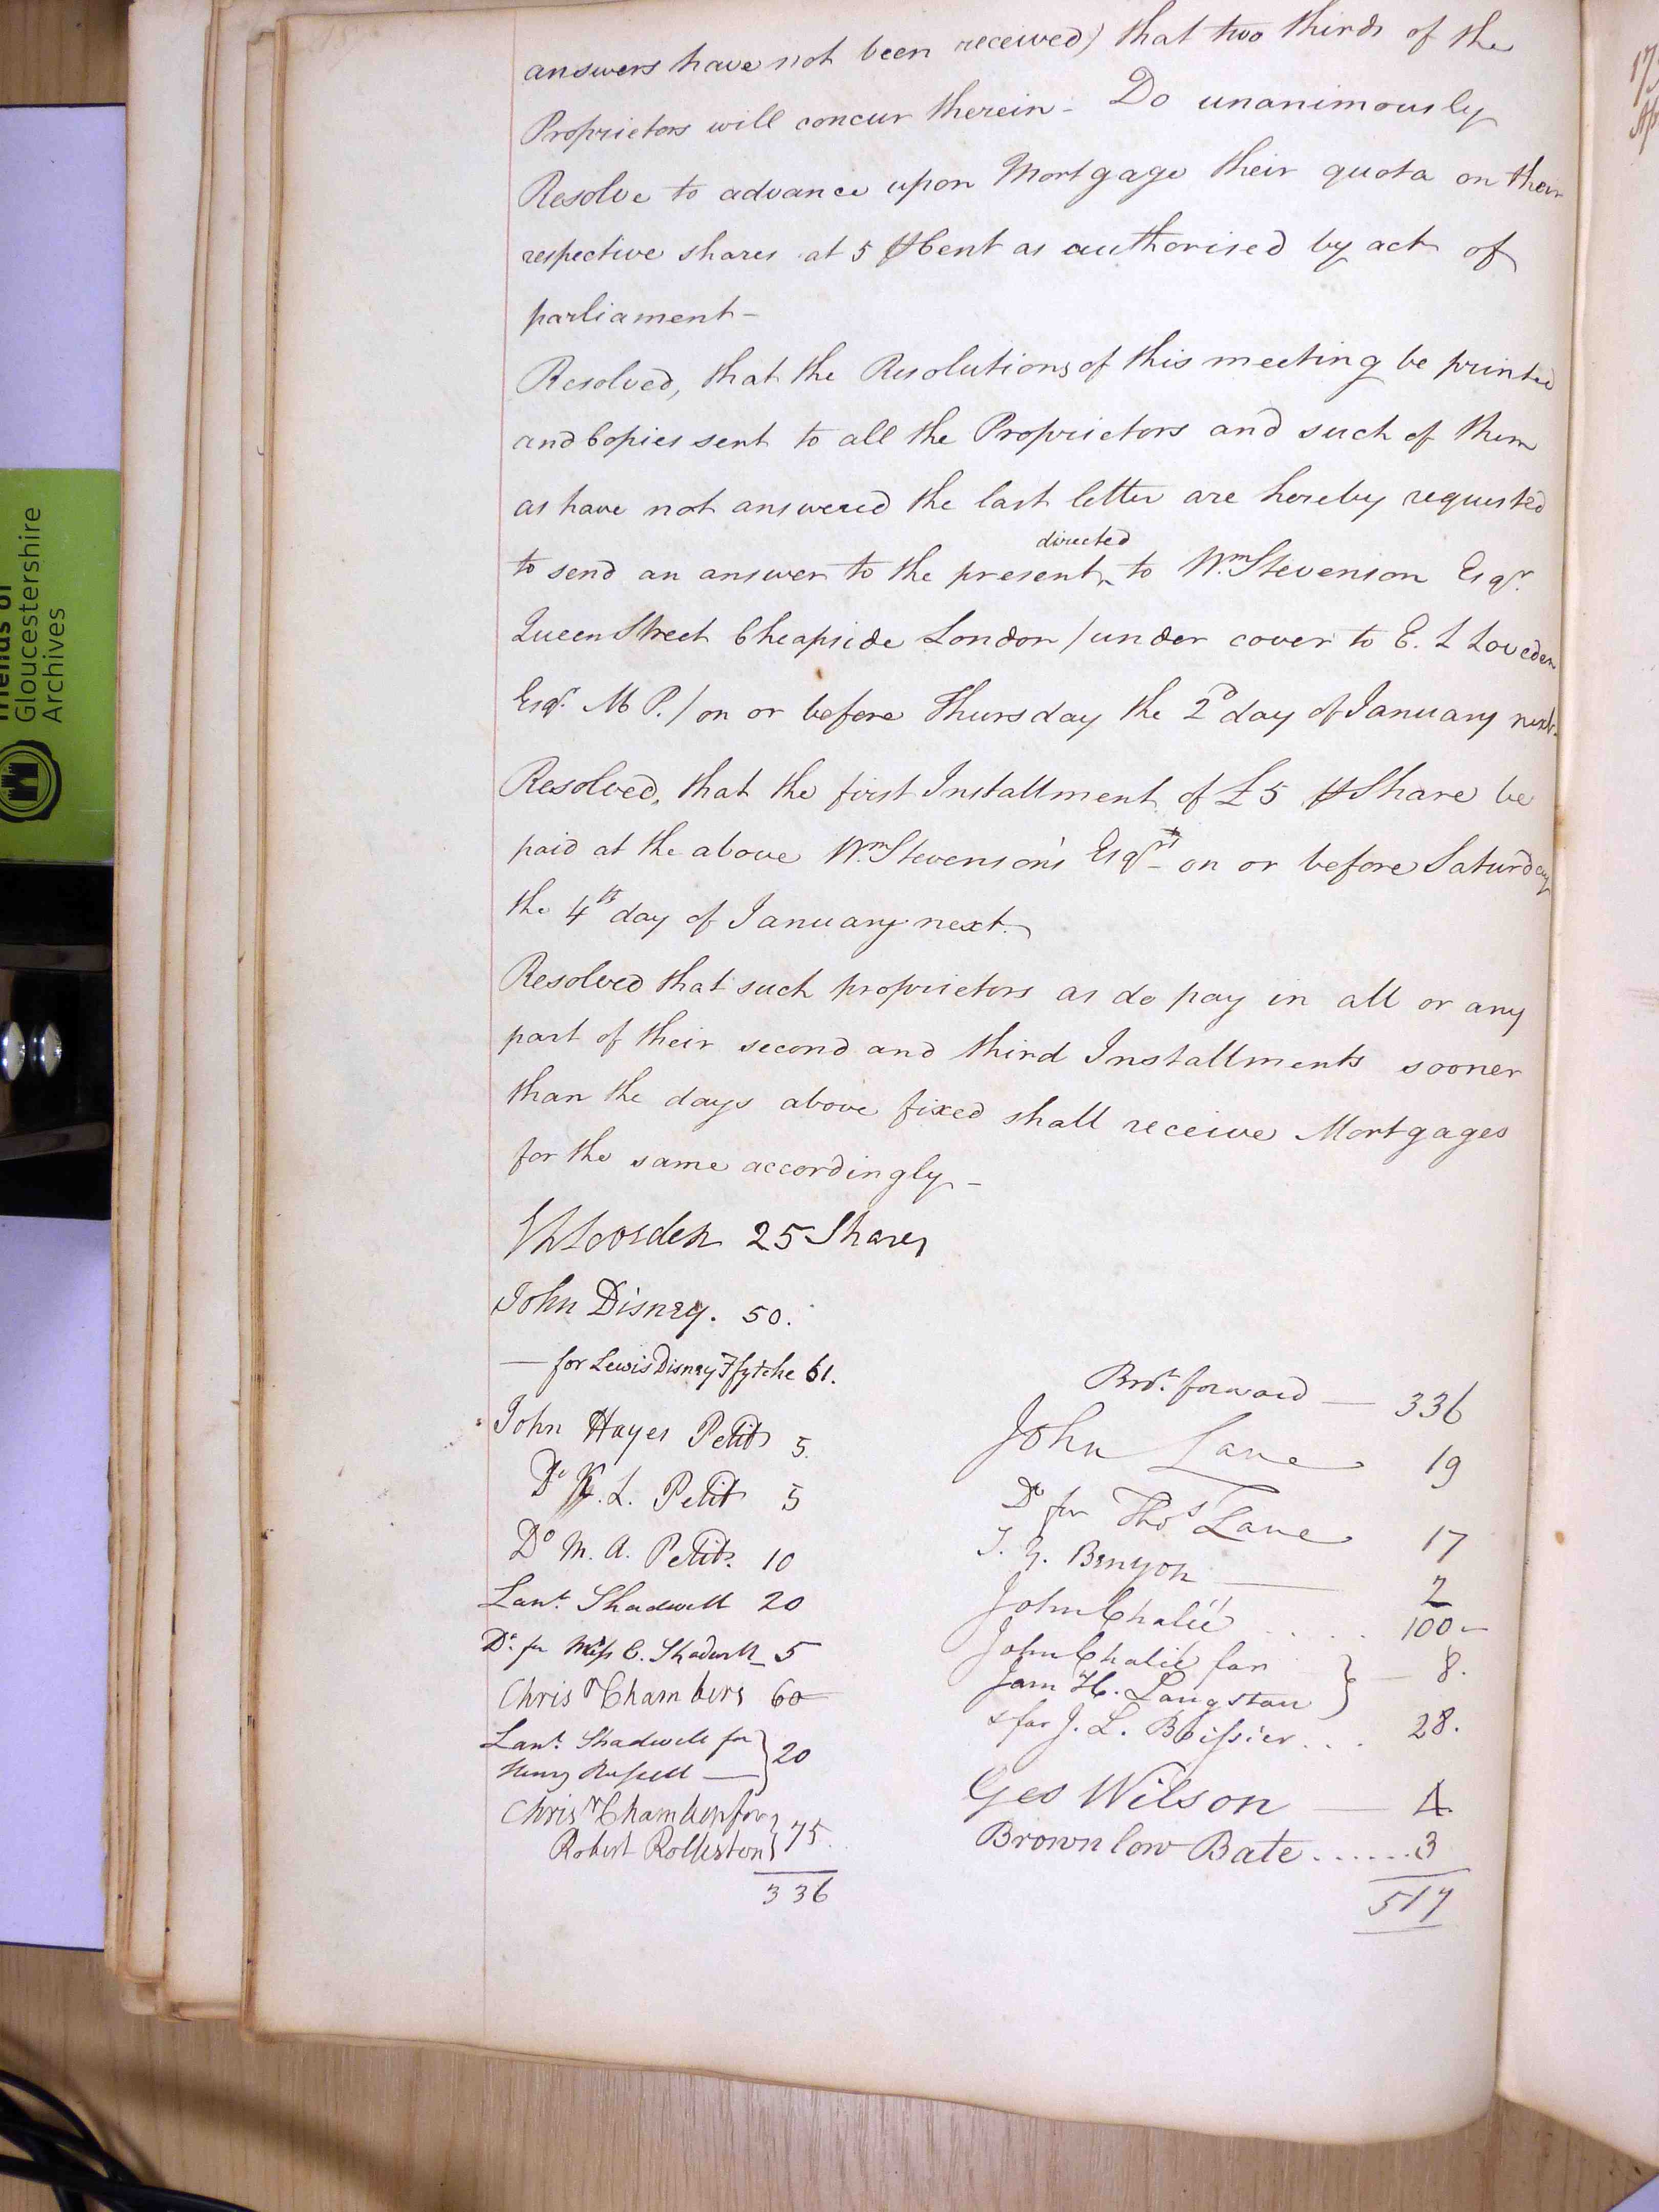 answers have not been received) that two thirds of the
Proprietors will concur therein - Do unanimously
Resolve to advance upon Mortgage their quota on their
respective shares at 5 ⅌ Cent as authorised by act of
parliament -
Resolved, that the Resolutions of this meeting be printed
and Copies sent to all the Proprietors and such of them
as have not answered the last letter are hereby requested
directed
to send an answer to the present ^ to Wm. Stevenson Esqr.
Queen Street Cheapside London / under cover to E. L Loveden
Esqr. M P. / on or before Thursday the 2d day of January next.
Resolved, that the first Installment of £5 ⅌ Share be
paid at the above Wm. Stevenson's Esqrs on or before Saturday
the 4th day of January next.
Resolved that such proprietors as do pay in all or any
part of their second and third Installments sooner
than the days above fixed shall receive Mortgages
for the same accordingly -
Loveden 25 Shares
John Disney. 50.
— for Lewis Disney Ffytche 61.
John Hayes Petit 5.
Do L. Petit 5
Do M. A. Petit. 10
Lant. Shadwell 20
Do. for Miss E. Shadwell 5
Chrisr Chambers 60
Lant. Shadwell for } 20
Henry Russell —
Chrisr Chambers for } 75.
Robert Rolleston
336
Brot. forward — 336
John Lane 19
Do for Thos Lane 17
Benyon — 2
John Chalié . . . . 100 -
John Chalié for } — 8.
Jam H. Langston
& for J. L. Boissier . . . 28.
Geo Wilson — 4
Brownlow Bate ...... 3
517
Friends of
Gloucestershire
Archives